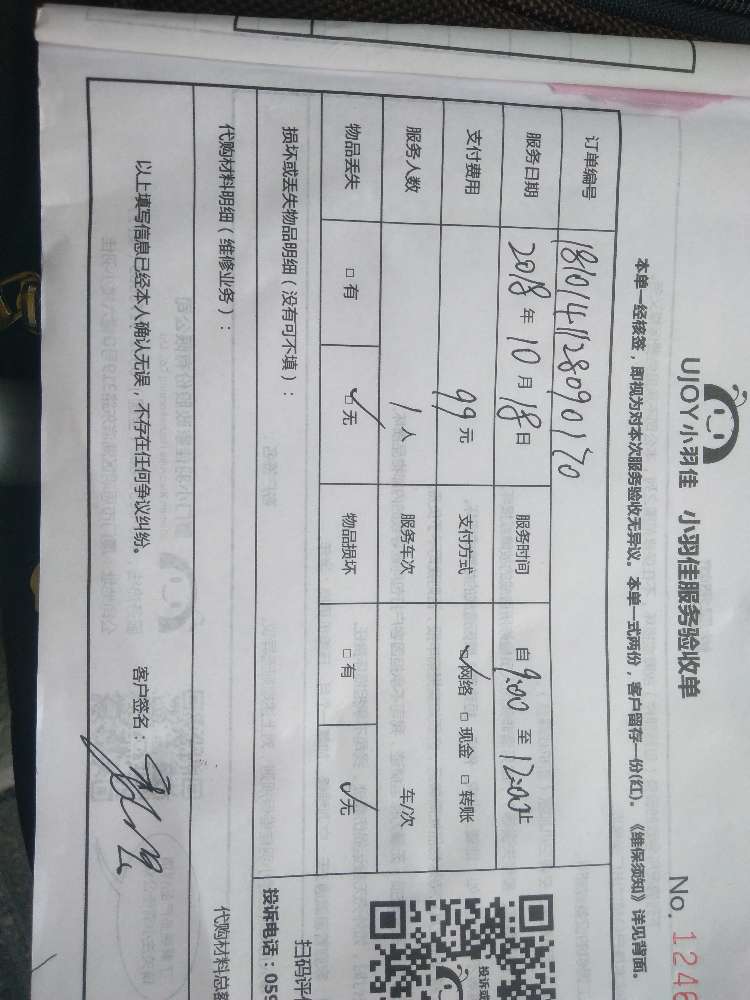 UJOY小羽佳 小羽佳服务验收单
No. 1248
本单一经核签，即视为对本次服务验收无异议。本单一式两份，客户留存一份(红)。《维保须知》详见背面。
订单编号 1810141128090170
服务日期 2018年10月18日 服务时间 自9:00至12:00止
支付费用 99元 支付方式 ☑网络 □现金 □转账
服务人数 1人 服务车次 车/次
物品丢失 □有 ☑无 物品损坏 □有 ☑无
损坏或丢失物品明细（没有可不填）：
代购材料明细（维修业务）：
代购材料总
以上填写信息已经本人确认无误，不存在任何争议纠纷。 客户签名：
投诉或
扫码评
投诉电话：059